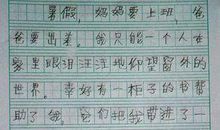 暑假，妈妈要上班，爸
爸要出差。我只能一个人在
家里眼泪汪汪地仰望窗外的
世界。幸好有一柜子的书帮
助了我，它们把我带进了一